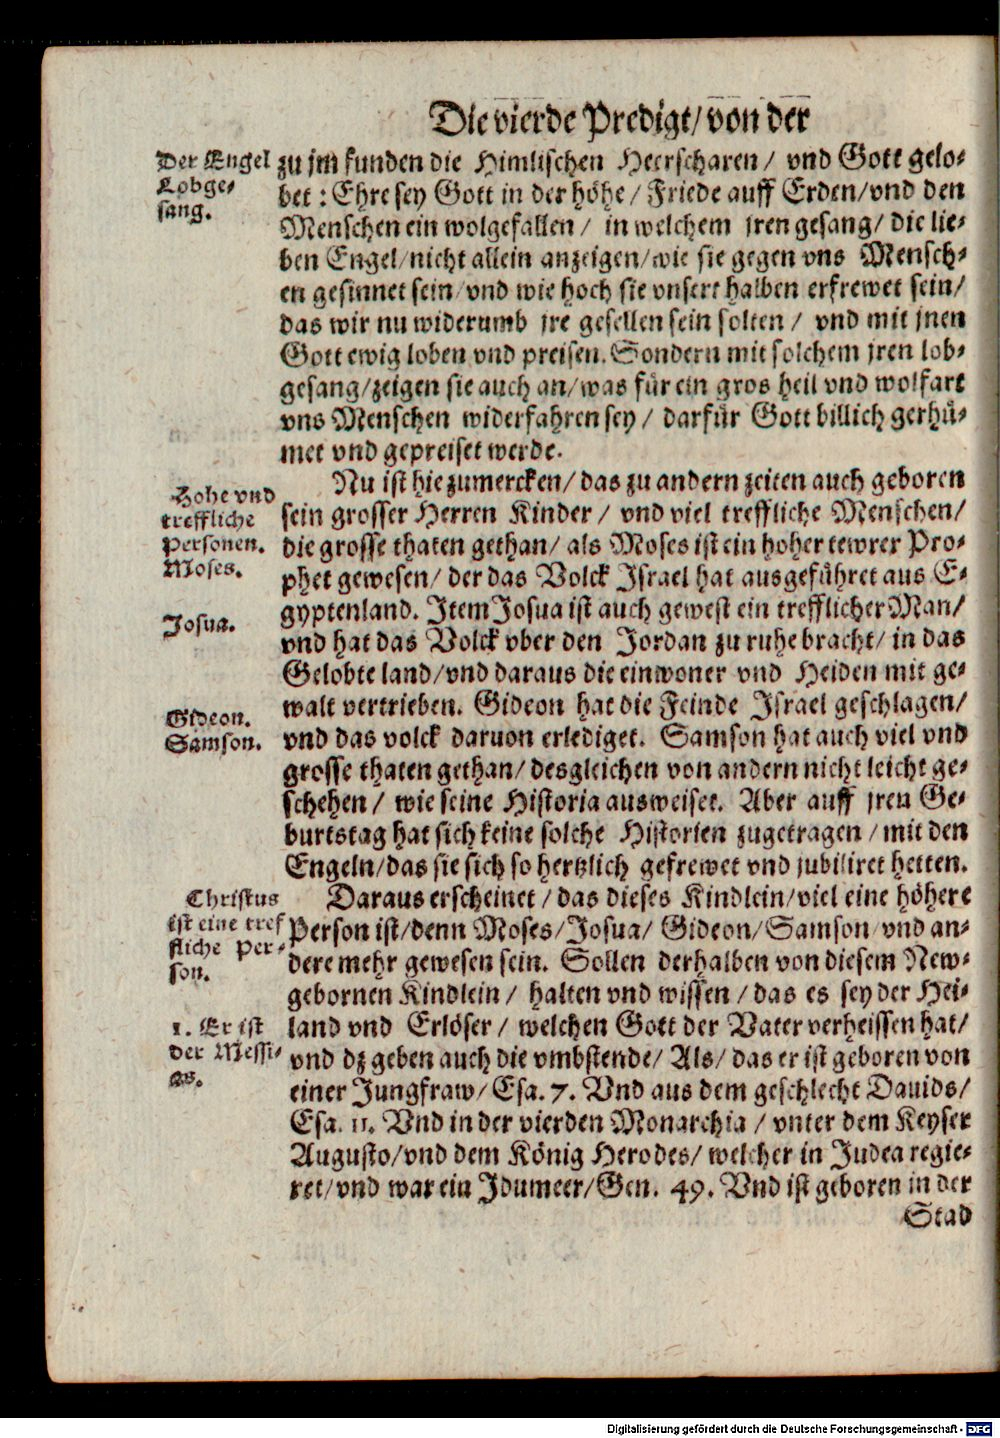 Die vierde Predigt/ von der
Der Engel
Lobge-
sang.
zu jm funden die Himlischen Heerscharen/ vnd Gott gelo-
bet: Ehre sey Gott in der höhe/ Friede auff Erden/vnd den
Menschen ein wolgefallen/ in welchem jren gesang/ die lie-
ben Engel/nicht allein anzeigen/wie sie gegen vns Mensch-
en gesinnet sein/vnd wie hoch sie vnsert halben erfrewet sein/
das wir nu widerumb jre gesellen sein solten/ vnd mit jnen
Gott ewig loben vnd preisen. Sondern mit solchem jren lob-
gesang/zeigen sie auch an/was für ein gros heil vnd wolfart
vns Menschen widerfahren sey/ darfür Gott billich gerhü-
met vnd gepreiset werde.
Hohe vnd
treffliche
Personen.
Moses.
Josua.
Gideon.
Samson.
Nu ist hie zumercken/ das zu andern zeiten auch geboren
sein grosser Herren Kinder/ vnd viel treffliche Menschen/
die grosse thaten gethan/ als Moses ist ein hoher tewrer Pro-
phet gewesen/ der das Volck Israel hat ausgeführet aus E-
gyptenland. Item Josua ist auch gewest ein trefflicher Man/
vnd hat das Volck vber den Jordan zu ruhe bracht/ in das
Gelobte land/vnd daraus die einwoner vnd Heiden mit ge-
walt vertrieben. Gideon hat die Feinde Israel geschlagen/
vnd das volck daruon erlediget. Samson hat auch viel vnd
grosse thaten gethan/ desgleichen von andern nicht leicht ge-
schehen/ wie seine Historia ausweiset. Aber auff jren Ge-
burtstag hat sich keine solche Historien zugetragen/mit den
Engeln/das sie sich so hertzlich gefrewet vnd jubiliret hetten.
Christus
ist eine tref
fliche Per-
son.
1. Er ist
der Messi-
as.
Daraus erscheinet/das dieses Kindlein/viel eine höhere
Person ist/denn Moses/Josua/ Gideon/Samson/vnd an-
dere mehr gewesen sein. Sollen derhalben von diesem New-
gebornen Kindlein/ halten vnd wissen/das es sey der Hei-
land vnd Erlöser/ welchen Gott der Vater verheissen hat/
vnd dz geben auch die vmbstende/ Als/ das er ist geboren von
einer Jungfraw/ Esa. 7. Vnd aus dem geschlecht Dauids/
Esa. 11. Vnd in der vierden Monarchia/ vnter dem Keyser
Augusto/vnd dem König Herodes/ welcher in Judea regie-
ret/vnd war ein Idumeer/Gen. 49. Vnd ist geboren in der
Stad
Digitalisierung gefördert durch die Deutsche Forschungsgemeinschaft - DFG